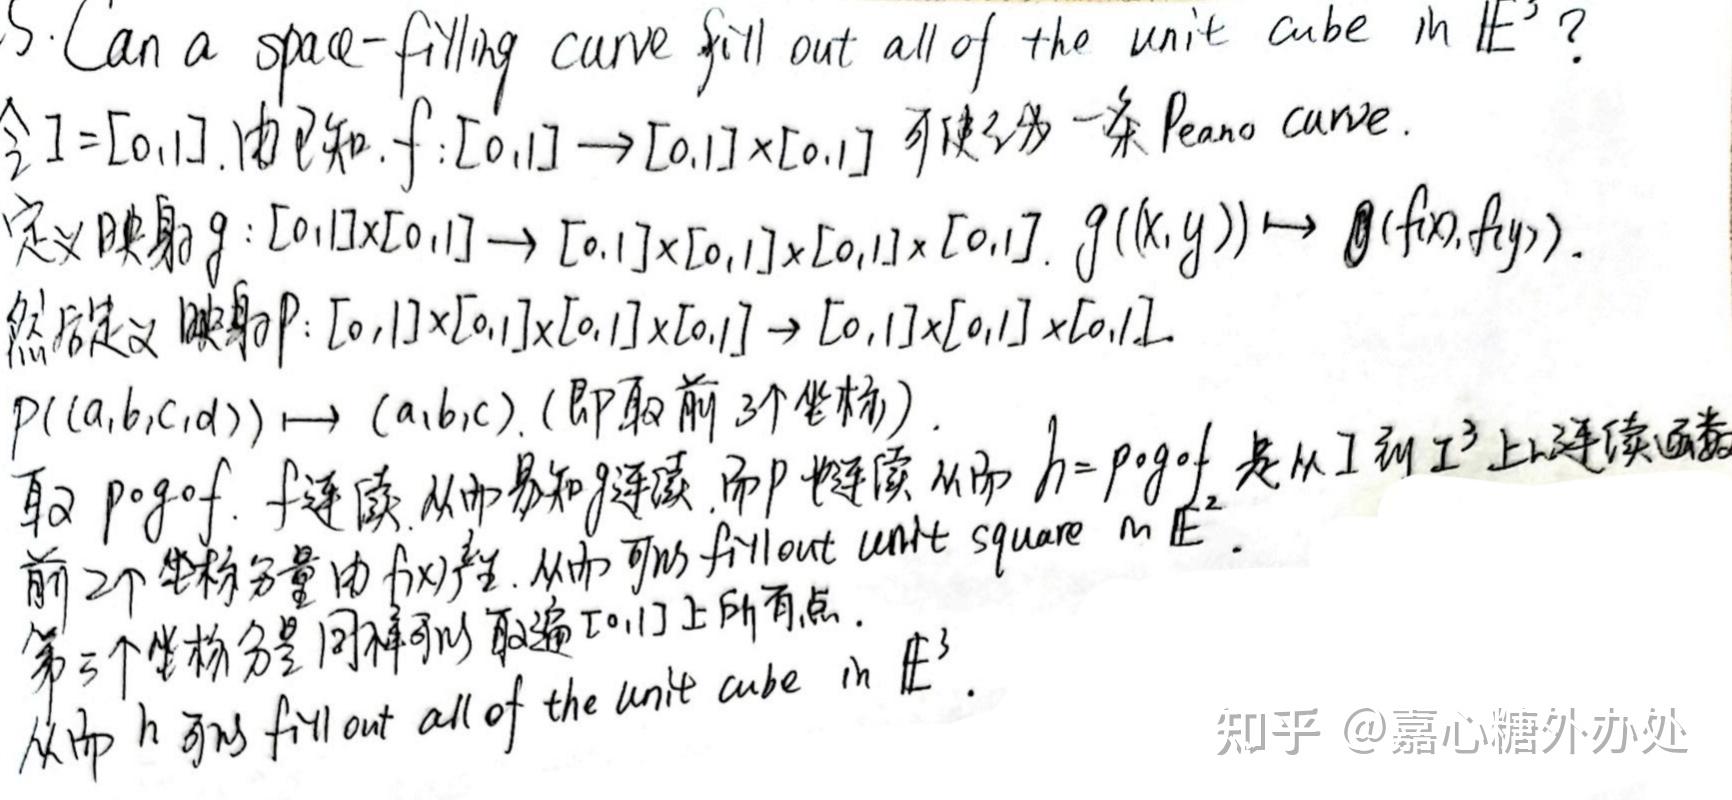 5. Can a space-filling curve fill out all of the unit cube in 𝔼³?
令 I=[0,1]. 由已知. f:[0,1]→[0,1]×[0,1] 可使之为一条 Peano curve.
定义映射g:[0,1]×[0,1]→[0,1]×[0,1]×[0,1]×[0,1]. g((x,y))↦(f(x),f(y)).
然后定义映射P:[0,1]×[0,1]×[0,1]×[0,1]→[0,1]×[0,1]×[0,1].
P((a,b,c,d))↦(a,b,c).(即取前3个坐标).
取 p∘g∘f. f连续.从而易知g连续.而P也连续 从而 h=p∘g∘f 是从 I 到 I³ 上的连续函数
前2个坐标分量由 f(x)产生.从而可以 fill out unit square in 𝔼².
第三个坐标分量同样可以取遍[0,1]上所有点.
从而 h 可以 fill out all of the unit cube in 𝔼³.
知乎 @嘉心糖外办处